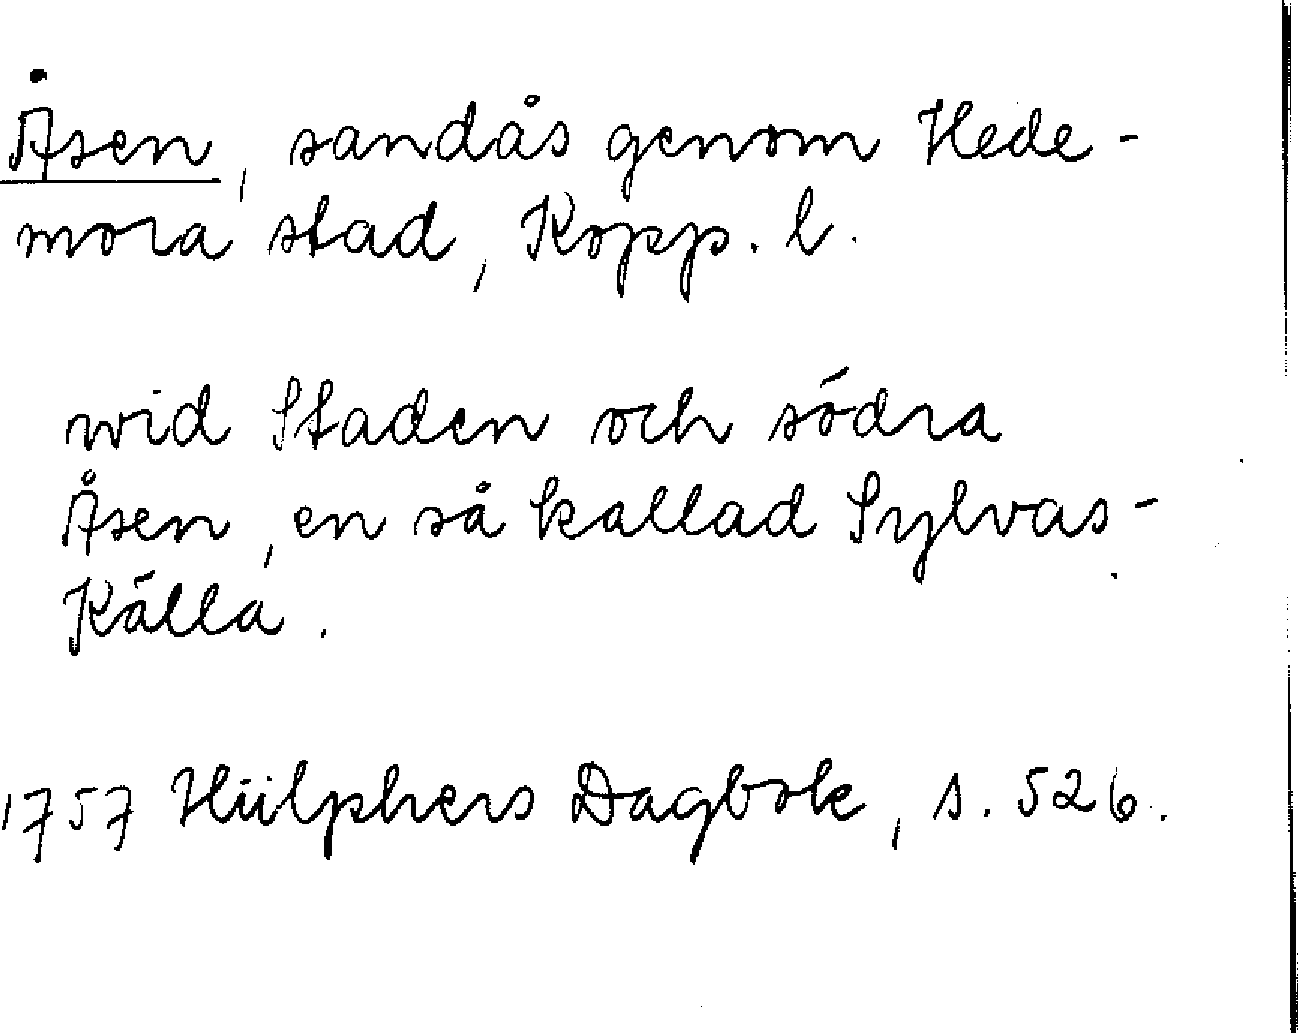 Åsen, sandås genom Hede-
mora stad, Kopp. l.
wid Staden och södra
Åsen, en så kallad Sylvas-
Källa.
1757 Hülphers Dagbok, s. 526.